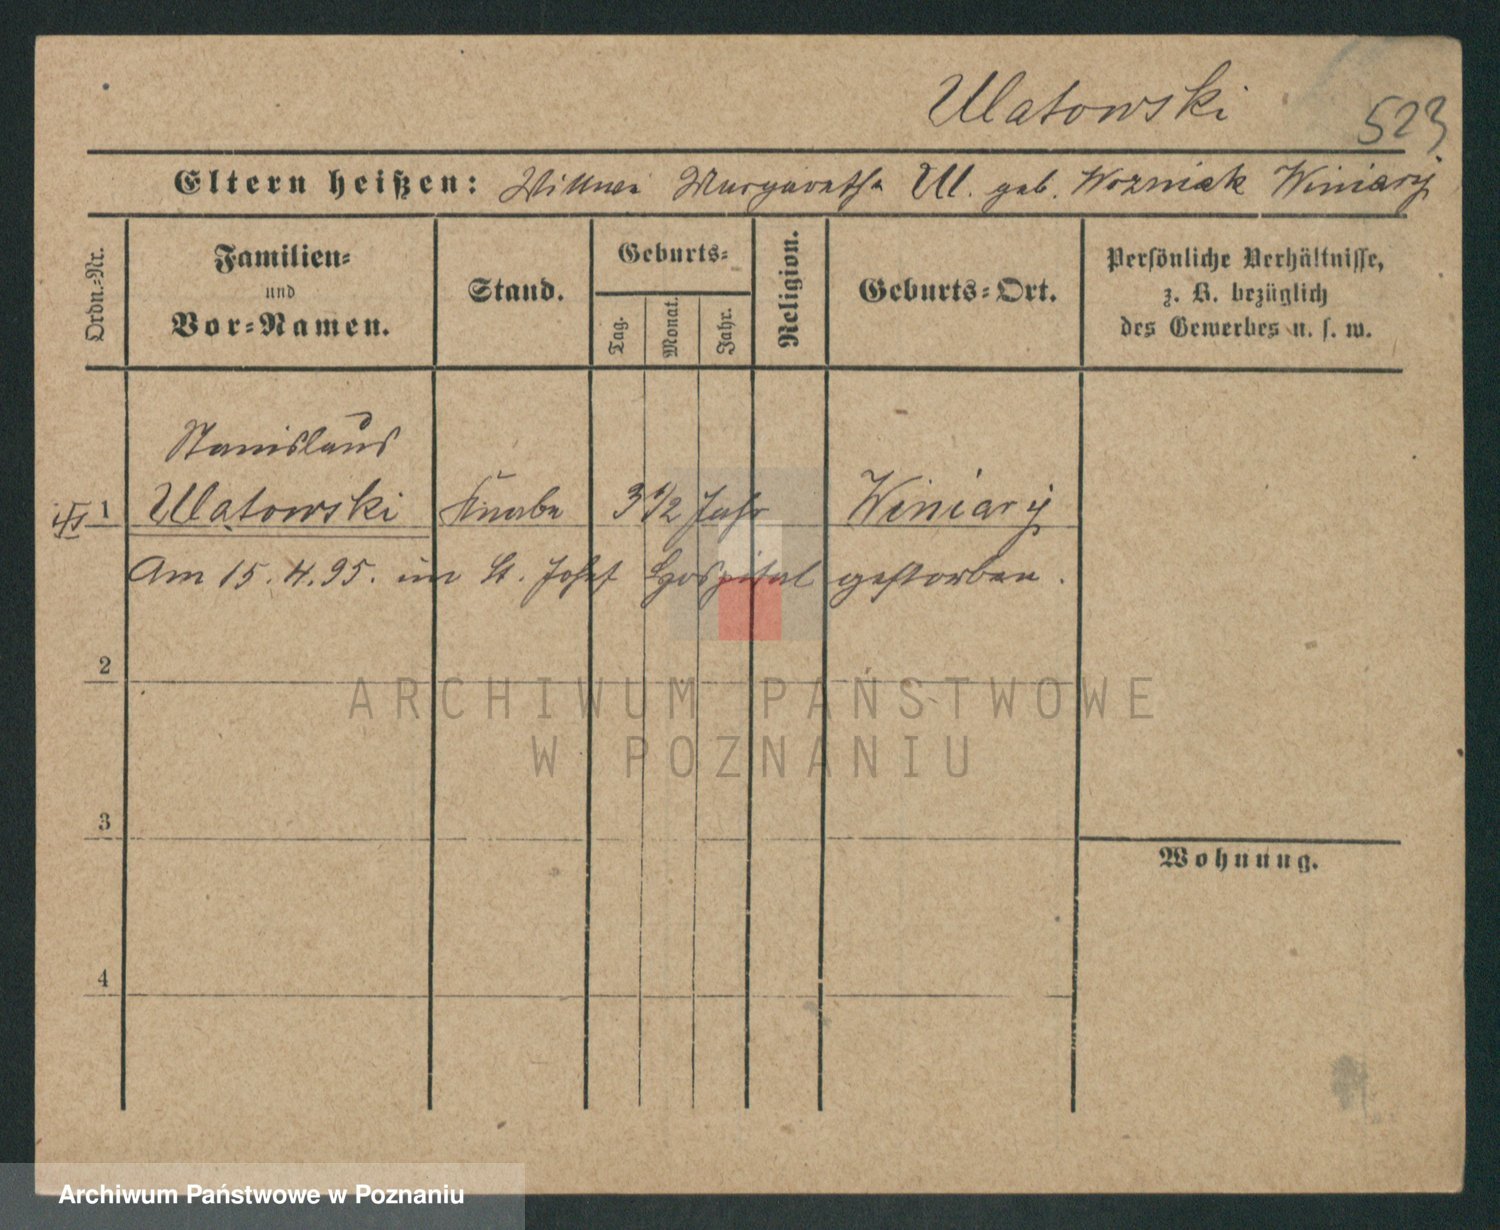 Ulatowski
523
Eltern heißen: Wittwe Margaretha Ul. geb. Wozniak Winiary
Ordn.-Nr.
Familien-
und
Vor-Namen.
Stand.
Geburts-
Tag.
Monat.
Jahr.
Religion.
Geburts-Ort.
Persönliche Verhältnisse,
z. B. bezüglich
des Gewerbes u. s. w.
Stanislaus
1 Ulatowski Knabe 3 1/2 Jahr Winiary
Am 15.4.95. im St. Josef Hospital gestorben.
2
ARCHIWUM PAŃSTWOWE
W POZNANIU
3
Wohnung.
4
Archiwum Państwowe w Poznaniu